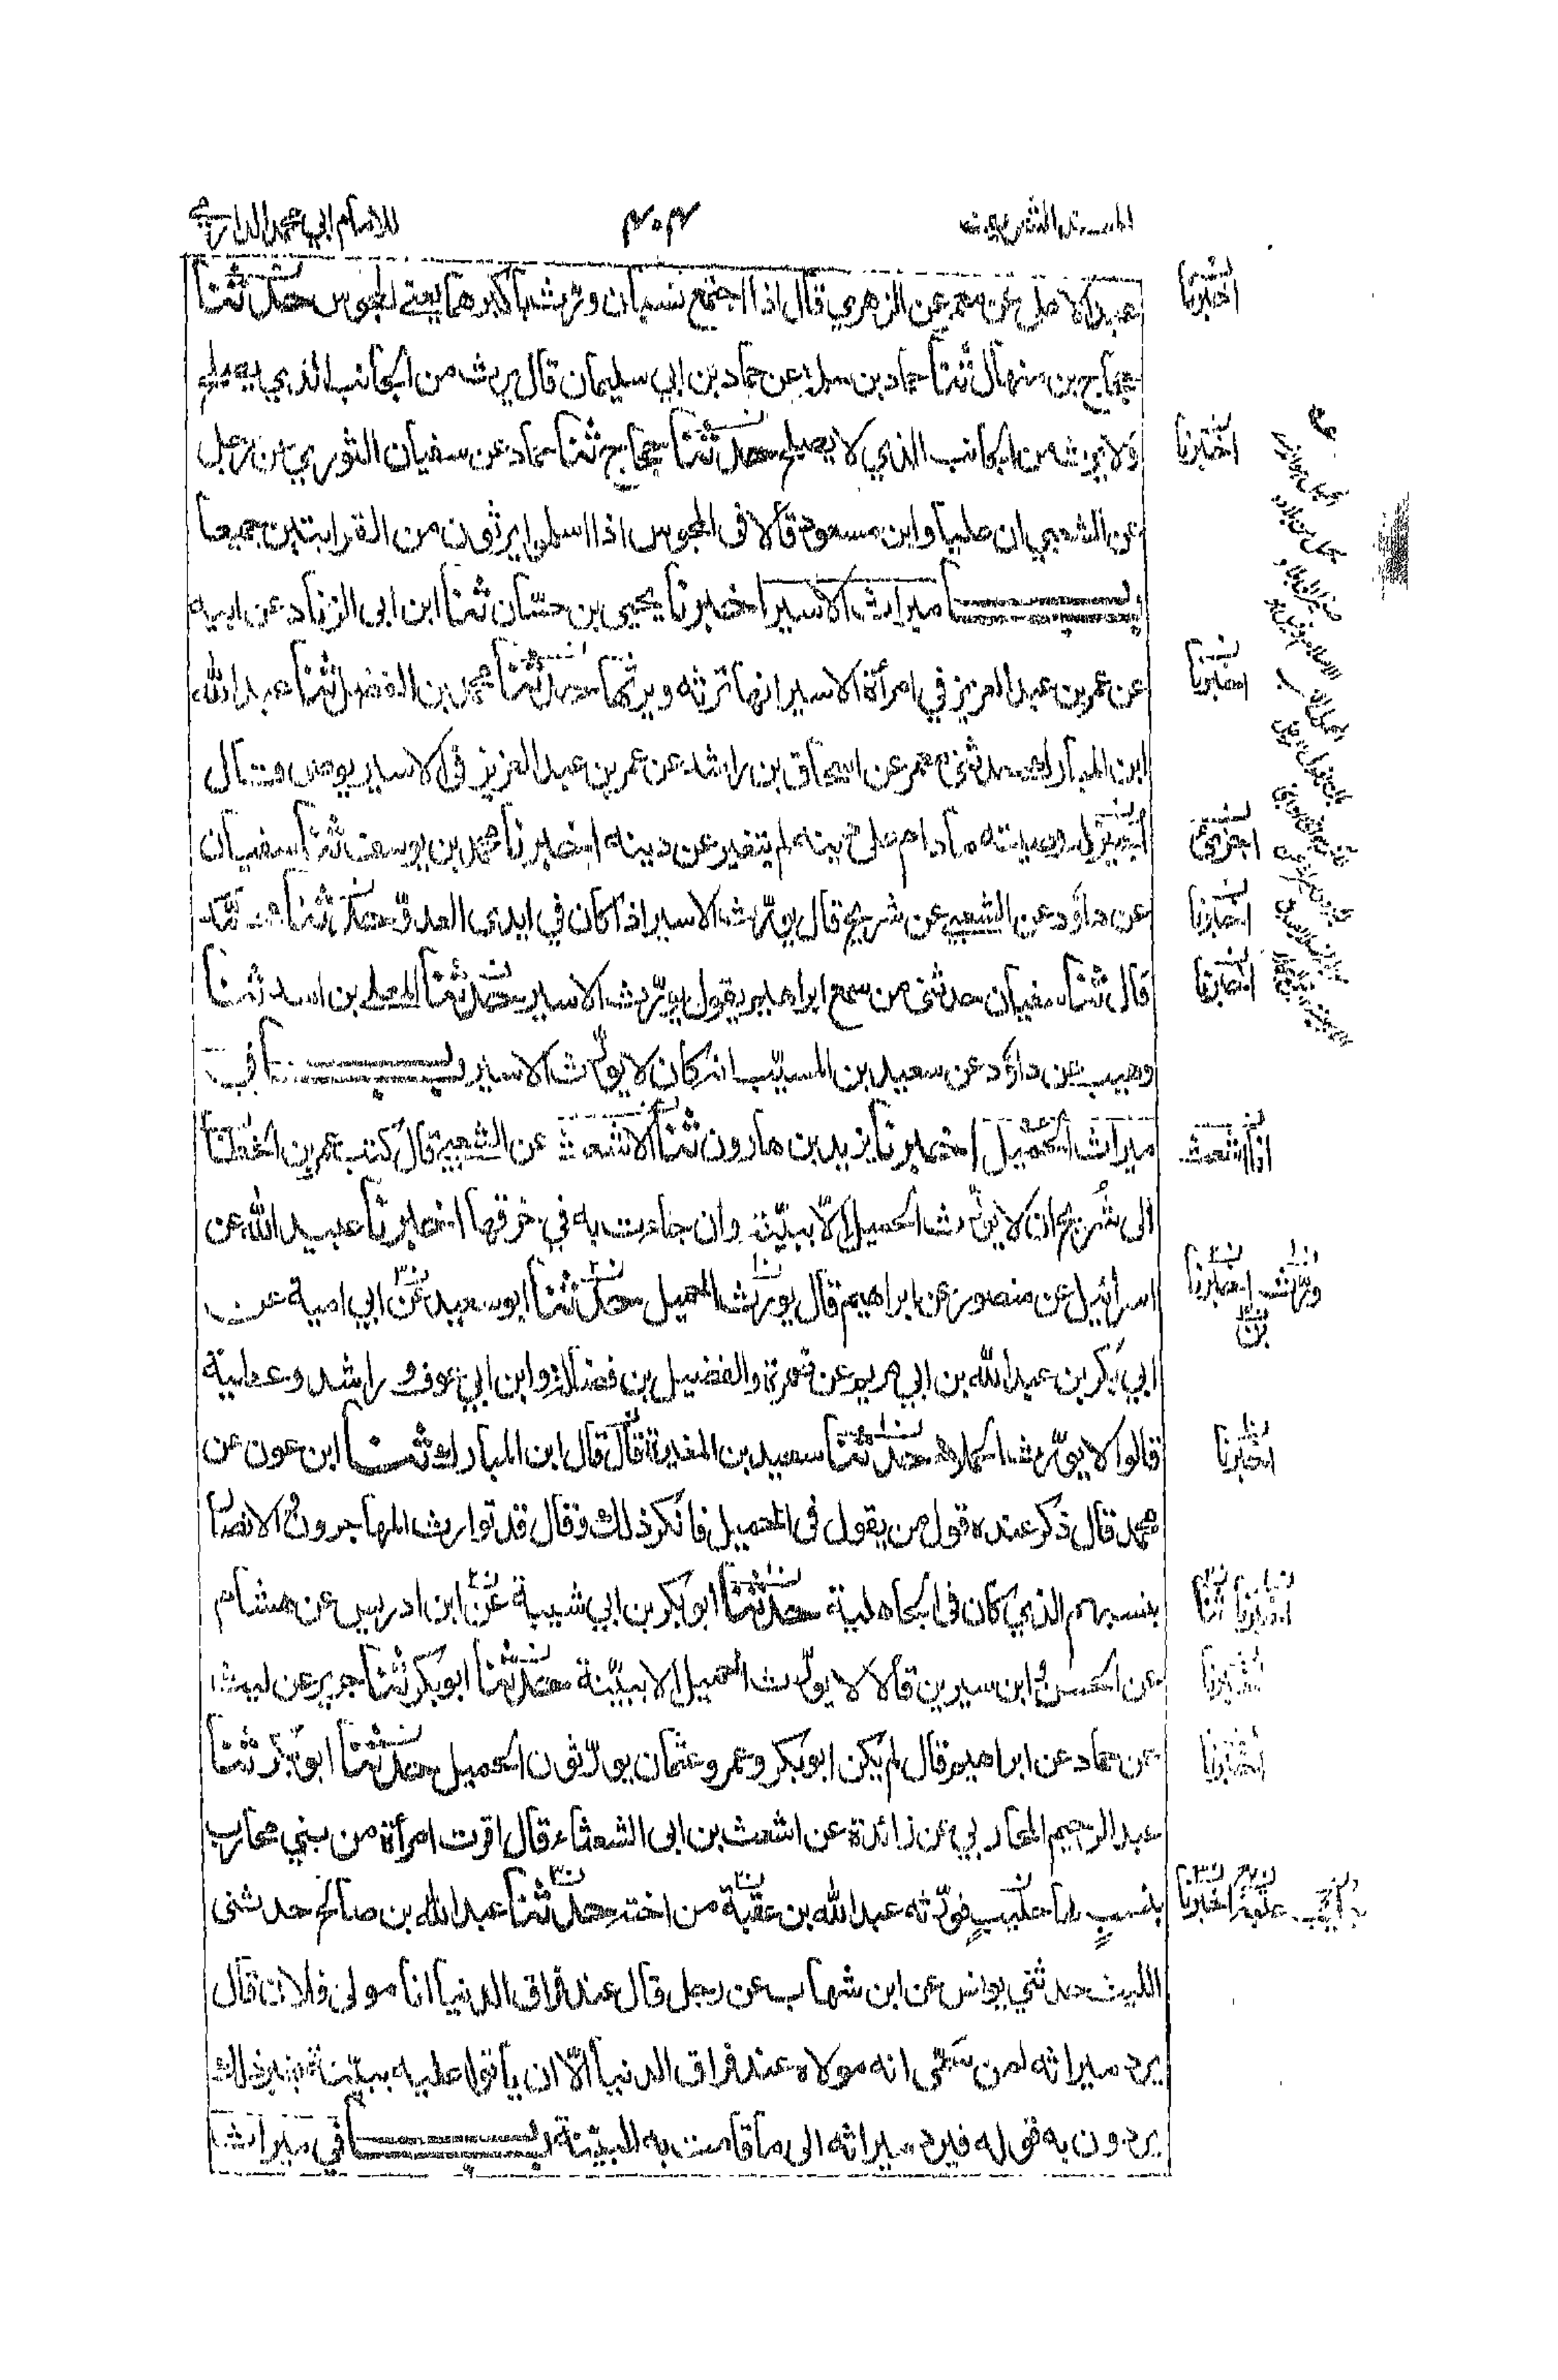 المسند الشريف ٤٠٣ للامام ابي محمد الدارمي
عبد الاعلى عن معمر عن الزهري قال اذا اجتمع نسبان ورث باكبرهما يعني المجوس حدثنا
حجاج بن منهال ثنا حماد بن سلمة عن حماد بن ابي سليمان قال يرث من الجانب الذي يصلح
ولا يرث من الجانب الذي لا يصلح حدثنا حجاج ثنا حماد عن سفيان الثوري عن رجل
عن الشعبي ان عليا وابن مسعود قالا في المجوس اذا اسلموا يرثون من القرابتين جميعا
باب ميراث الاسير اخبرنا يحيى بن حسّان ثنا ابن ابى الزناد عن ابيه
عن عمر بن عبد العزيز في امرأة الاسير انها ترثه ويرثها حدثنا محمد بن الفضل ثنا عبد الله
ابن المبارك حدثنى معمر عن اسحاق بن راشد عن عمر بن عبد العزيز في الاسير يوصى قال
أجيز له وصيته ما دام على دينه لم يتغير عن دينه اخبرنا محمد بن يوسف ثنا سفيان
عن داؤد عن الشعبي عن شريح قال يورّث الاسير اذا كان في ايدى العدوّ حدثنا محمّد
قال ثنا سفيان حدثنى من سمع ابراهيم يقول يورّث الاسير حدثنا المعلى بن اسد ثنا
وهيب عن داؤد عن سعيد بن المسيّب انه كان لا يورّث الاسير باب في
ميراث الحميل اخبرنا يزيد بن هارون ثنا الاشعث عن الشعبي قال كتب عمر بن الخطاب
الى شُريح ان لا يورّث الحميل الّا ببيّنة وان جاءت به في خرقها اخبرنا عبيد الله عن
اسرائيل عن منصور عن ابراهيم قال يورّث الحميل حدثنا ابو سعيد عن ابي امية عن
ابي بكر بن عبد الله بن ابي مريم عن ضمرة والفضيل بن فضالة وابن ابي عوف وراشد وعطية
قالوا لا يورّث الحملاء حدثنا سعيد بن المغيرة قال قال ابن المبارك ثنا ابن عون عن
محمد قال ذكر عنده قول من يقول في الحميل فانكر ذلك وقال قد توارث المهاجرون والانصار
بنسبهم الذي كان في الجاهلية حدثنا ابو بكر بن ابي شيبة عن ابن ادريس عن هشام
عن الحسن وابن سيرين قالا لا يورّث الحميل الا ببيّنة حدثنا ابو بكر ثنا جرير عن ليث
عن حماد عن ابراهيم قال لم يكن ابو بكر وعمر وعثمان يورّثون الحميل حدثنا ابو بكر ثنا
عبد الرحيم المحاربي عن زائدة عن اشعث بن ابى الشعثاء قال اقرت امرأة من بني محارب
بنسبٍ لها جليبٍ فورّثه عبد الله بن عقبة من اخته حدثنا عبد الله بن صالح حدثنى
الليث حدثني يونس عن ابن شهاب عن رجل قال عند فراق الدنيا انا مولى فلان قال
يرث ميراثه لمن سمّى انه مولاه عند فراق الدنيا الّا ان يأتوا عليه ببيّنة بغير ذلك
يردون به قوله فيرد ميراثه الى ما قامت به البيّنة باب في ميراث
اخبرنا
اخبرنا
اخبرنا
اخبرني
اخبرنا
اخبرنا
انا اشعث
ورّث اخبرنا
بن
اخبرنا
اخبرنا ثنا
اخبرنا
اخبرنا
علقمة اخبرنا